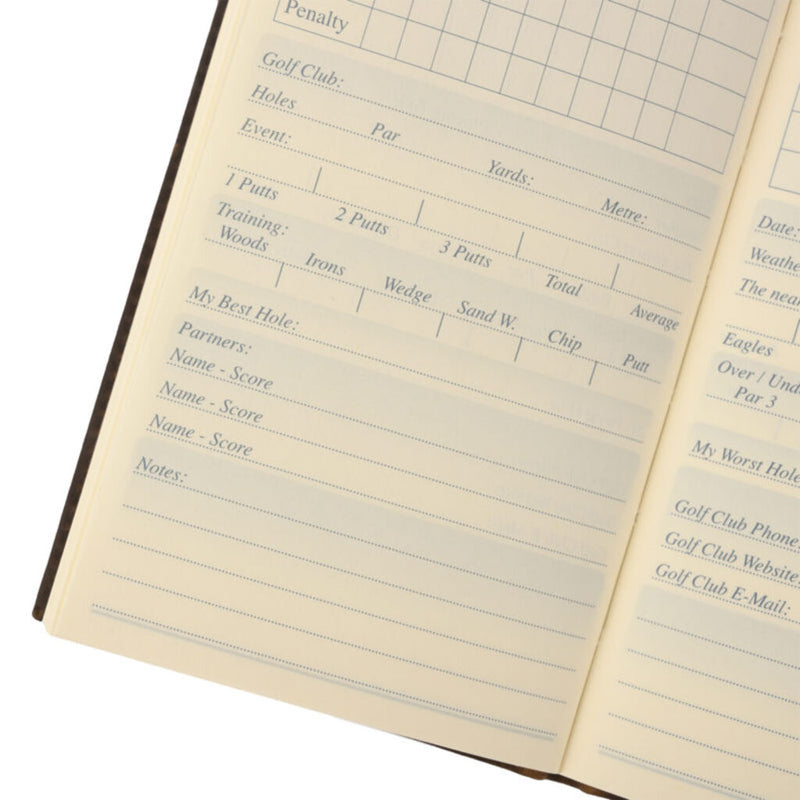 Penalty
Golf Club:
Holes Par Yards: Metre:
Event:
1 Putts 2 Putts 3 Putts Total Average
Training:
Woods Irons Wedge Sand W. Chip Putt
My Best Hole:
Partners:
Name - Score
Name - Score
Name - Score
Notes:
Date:
Weathe
The nea
Eagles
Over / Und
Par 3
My Worst Hole
Golf Club Phone:
Golf Club Website:
Golf Club E-Mail: